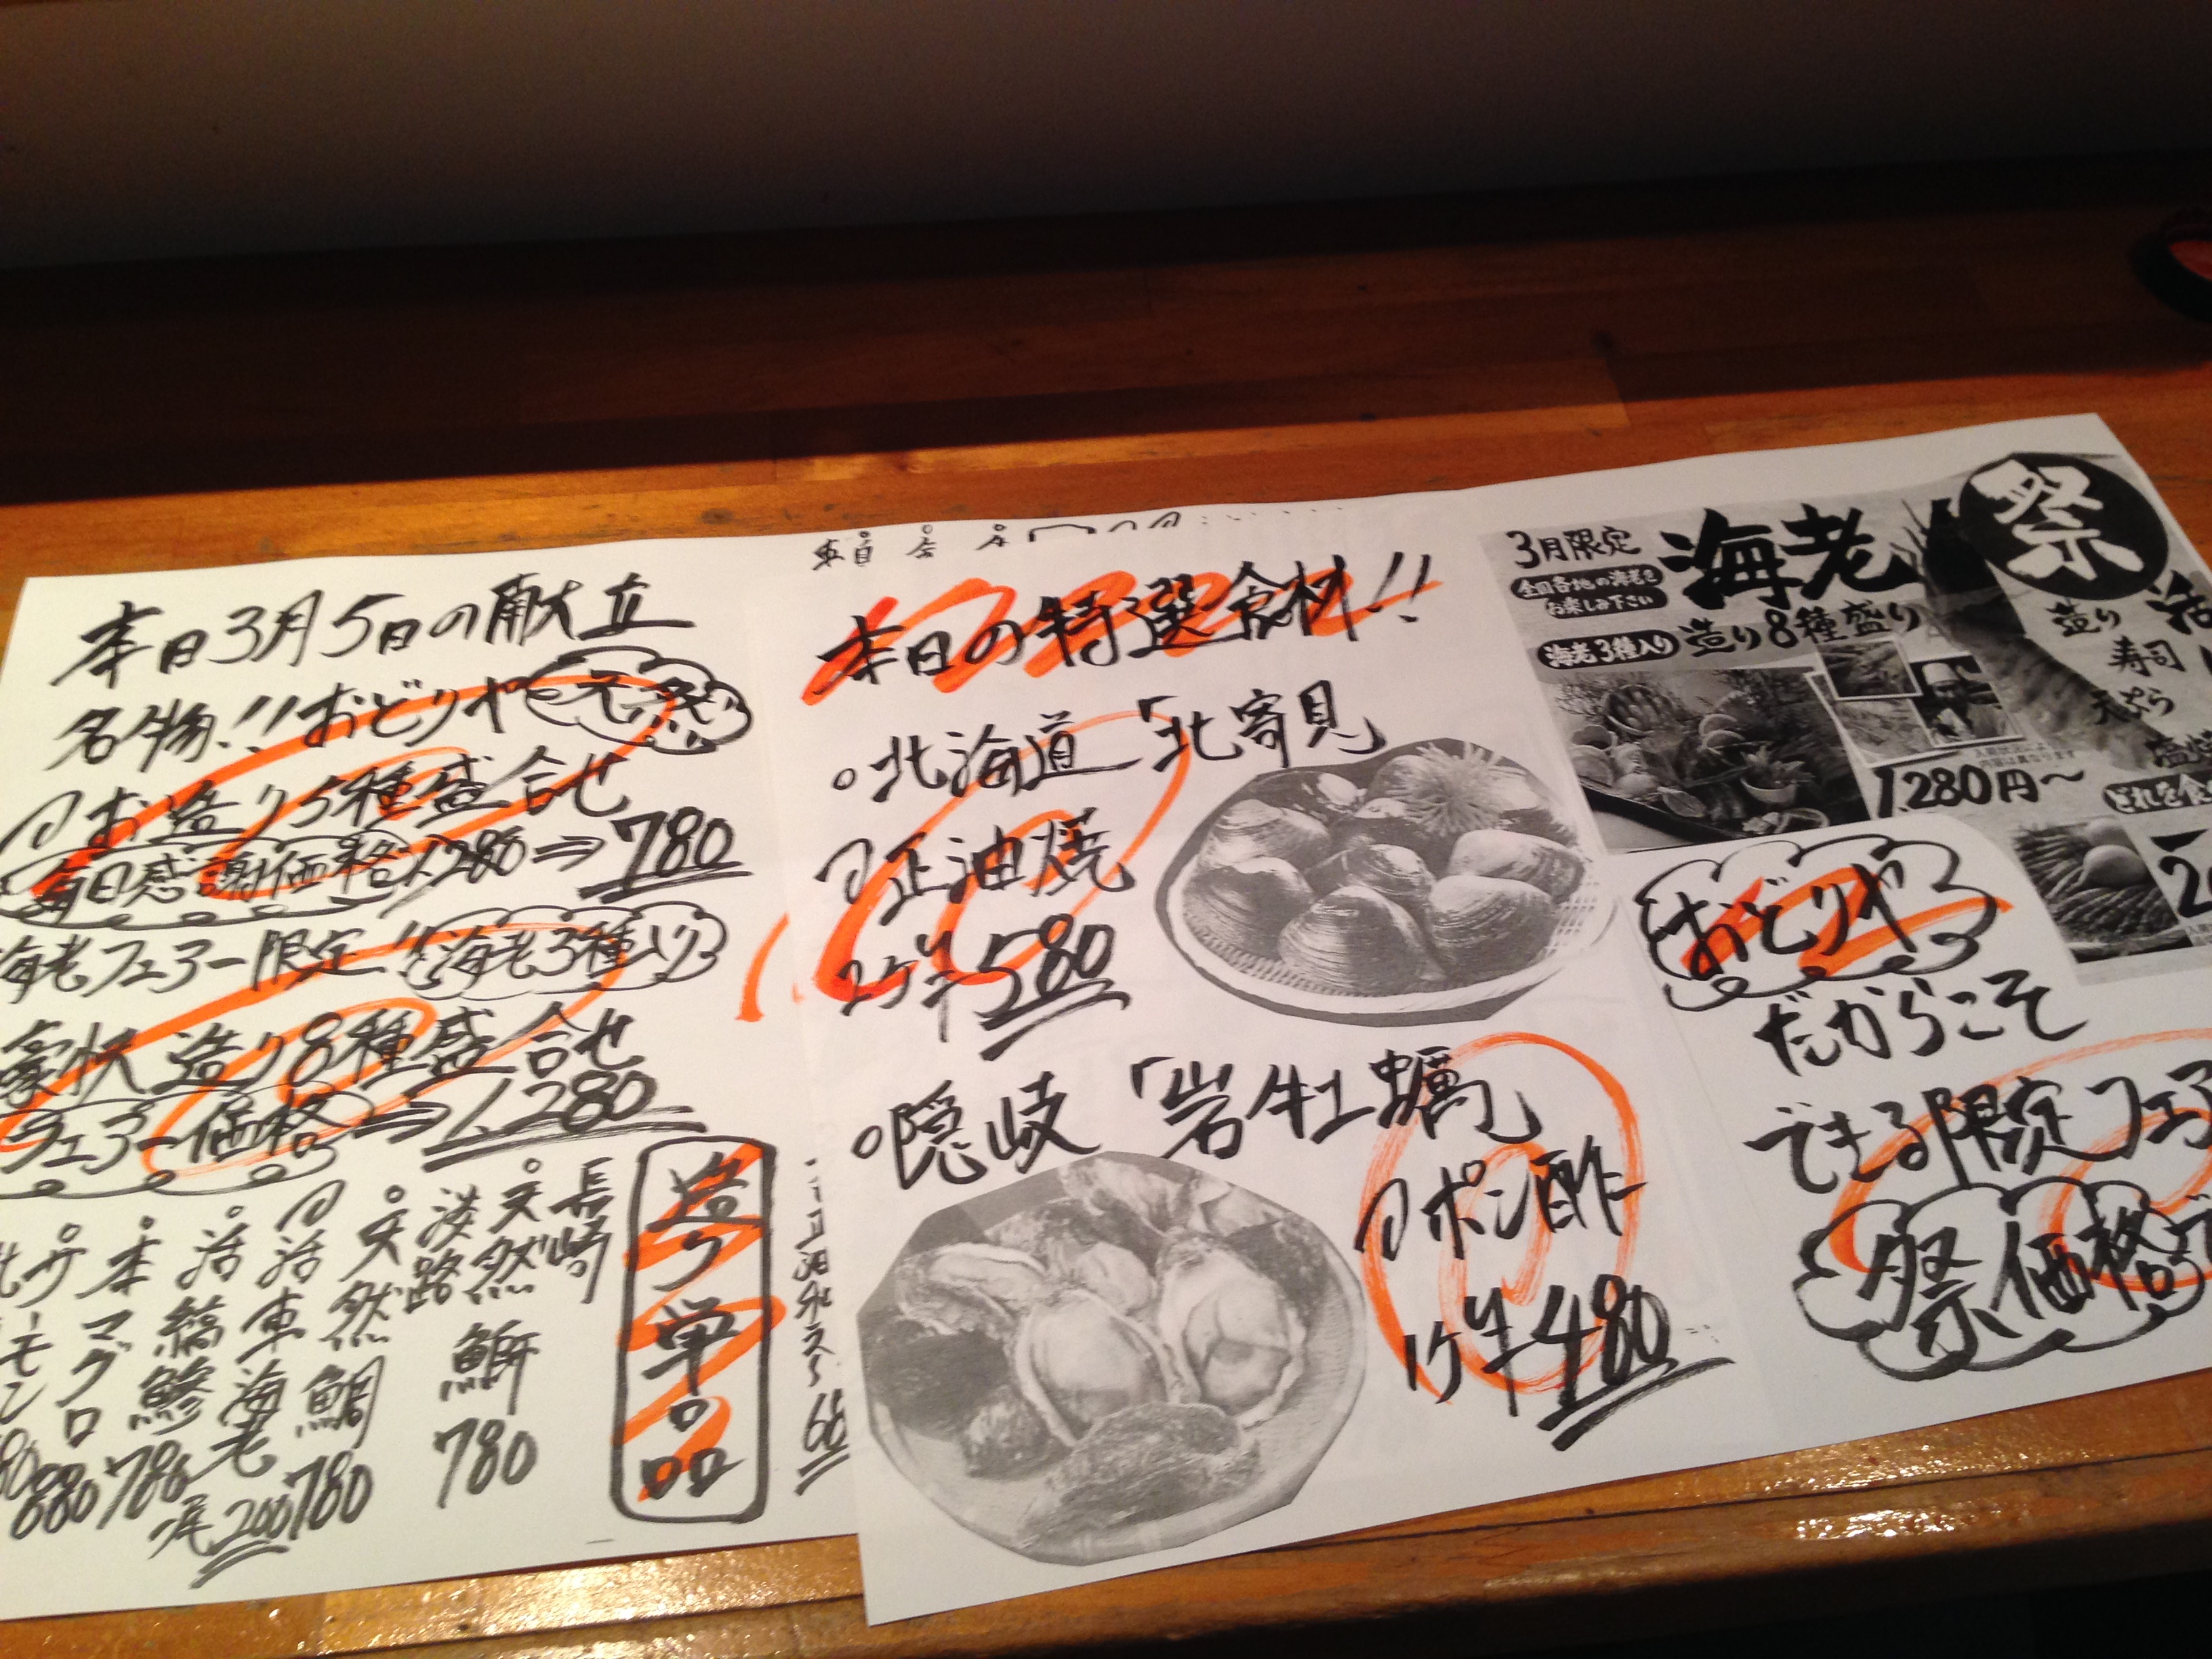 本日3月5日の献立
名物!!おどりや
お造り5種盛合せ
毎日感謝価格1,280⇒780
海老フェアー限定!!海老3種入り
豪快造り8種盛合せ
フェアー価格⇒1,280
造り単品
長崎
天然
淡路
鰤 780
天然鯛 780
活車海老 一尾200
活縞鯵 780
本マグロ 880
サーモン
本日の特選食材!!
北海道「北寄貝」
正油焼
2ケ¥580
隠岐「岩牡蠣」
ポン酢
1ケ¥480
3月限定
海老祭
全国各地の海老を
お楽しみ下さい
海老3種入り 造り8種盛り
1,280円〜
造り
寿司
天ぷら
おどりや
だからこそ
できる限定フェア
祭価格